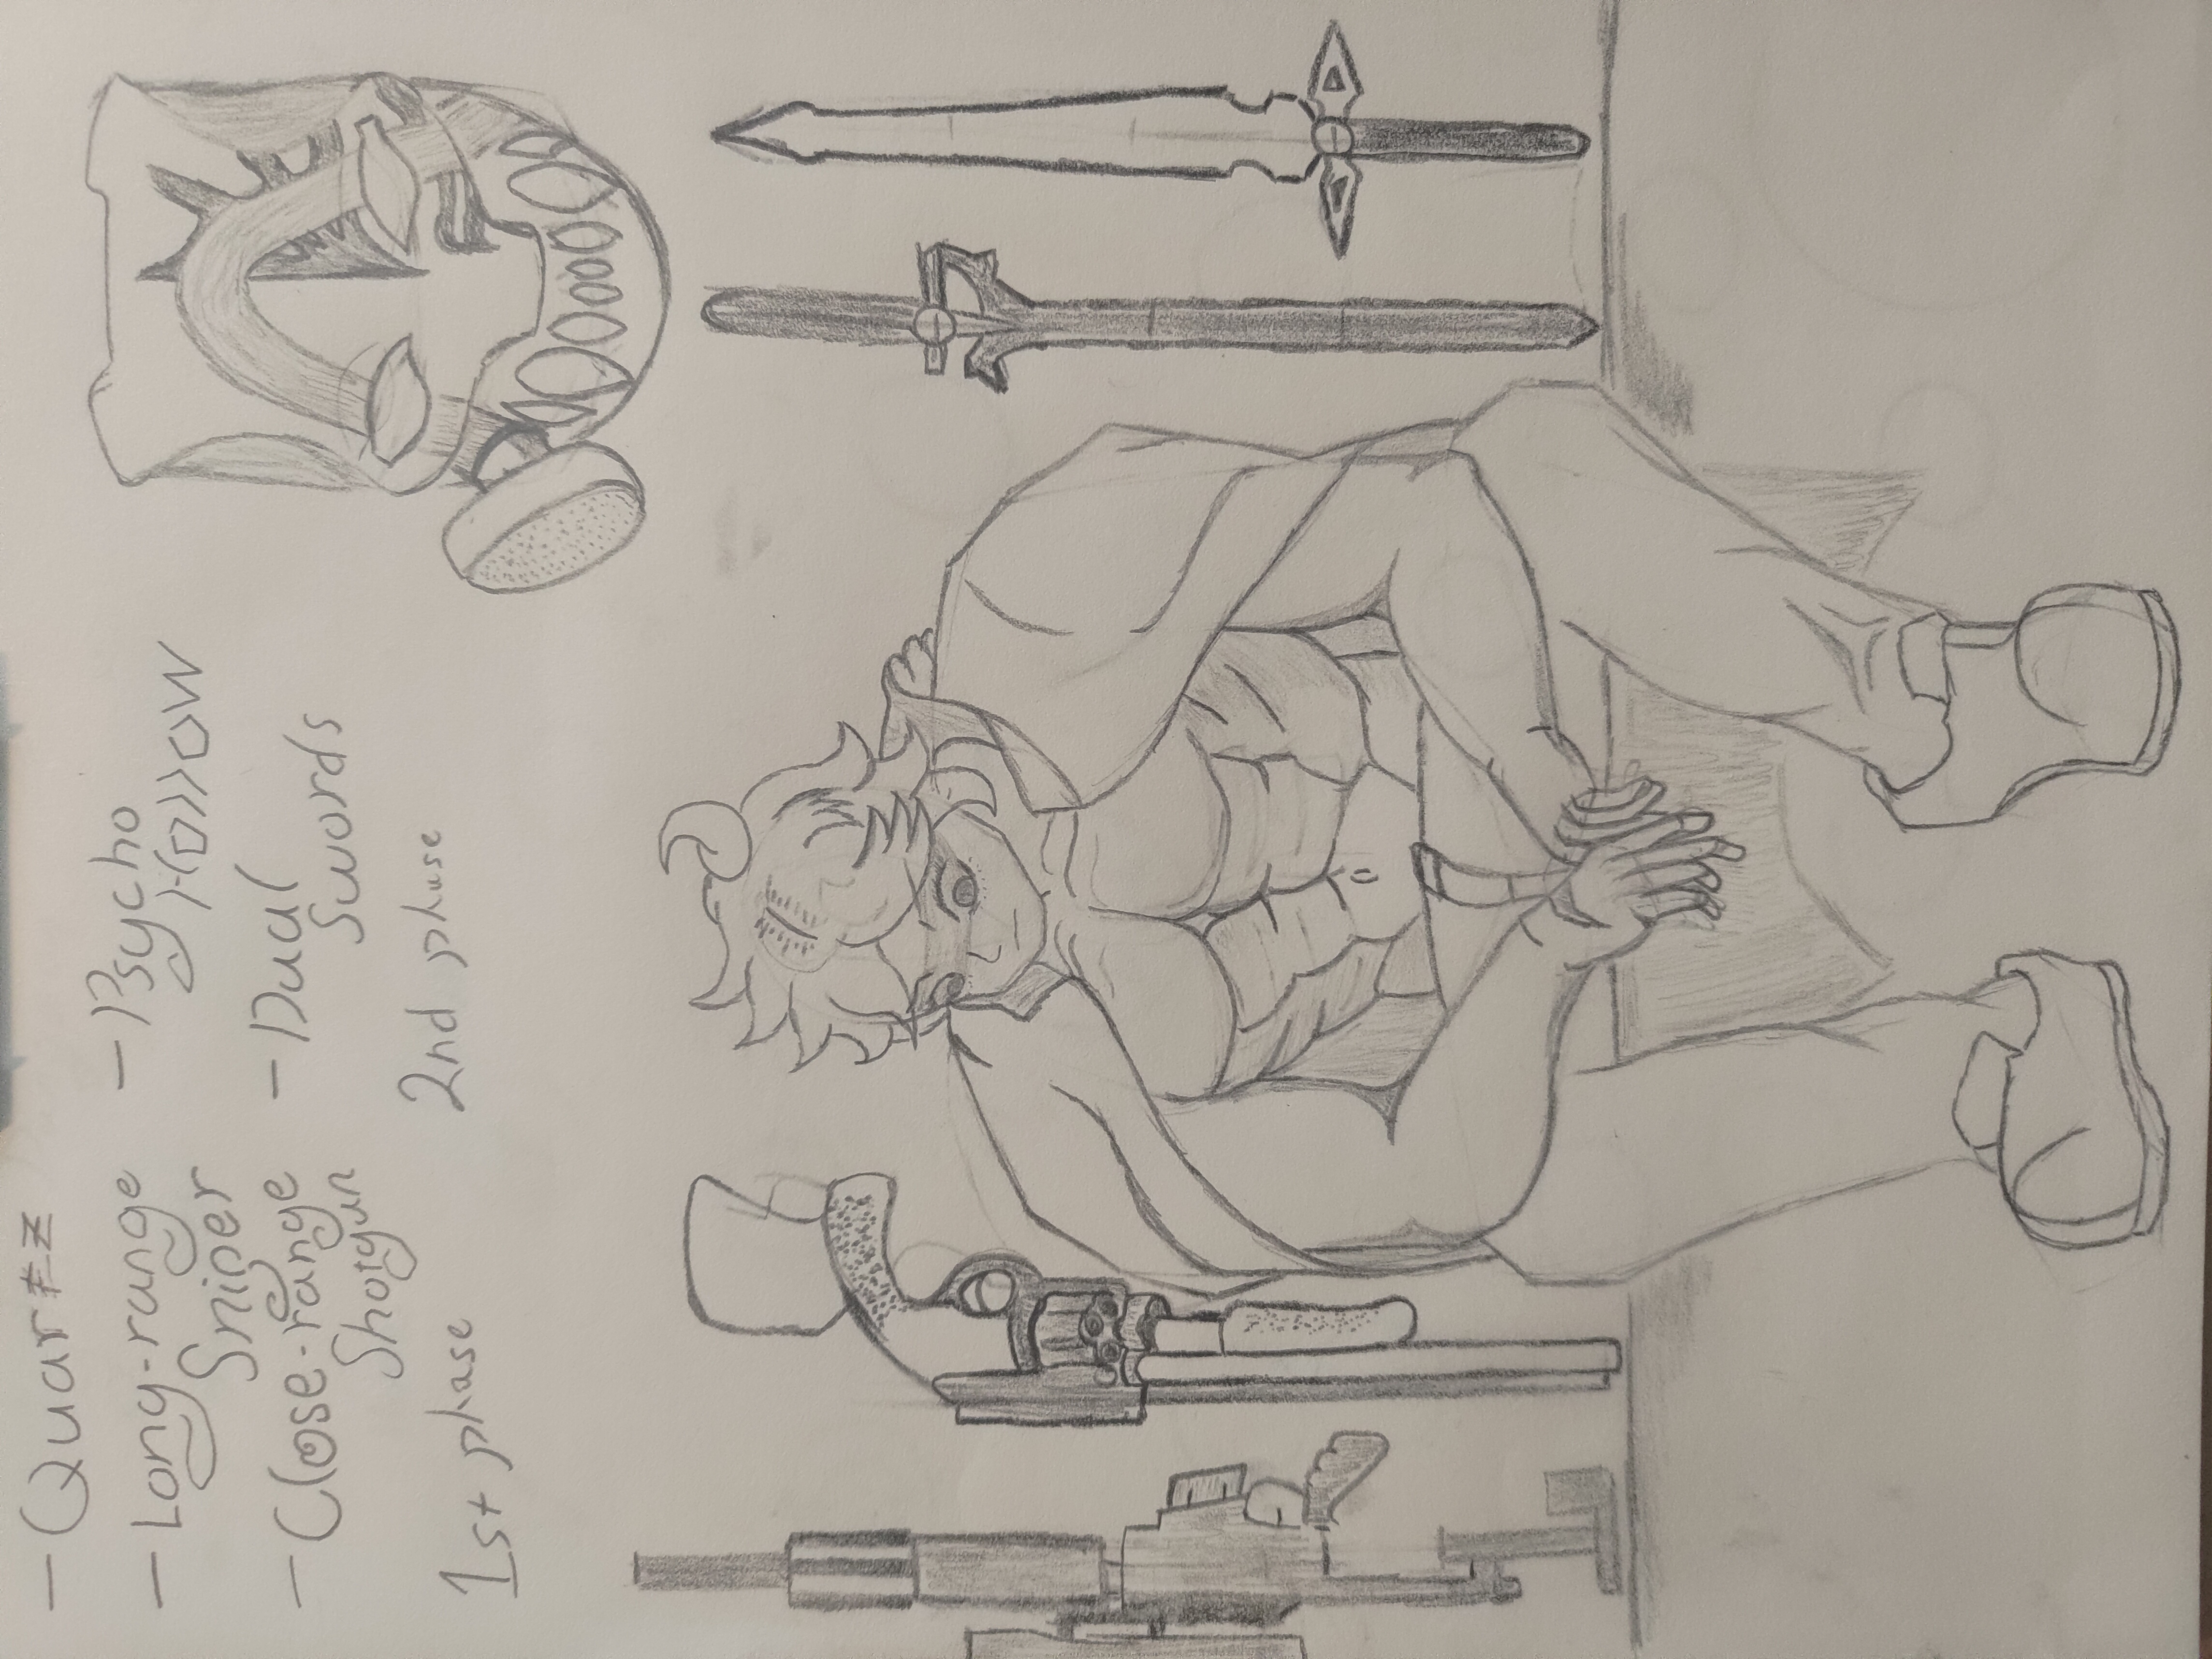 - Quartz
- Long-range
Sniper
- Close-range
Shotgun
1st phase
- Psycho
Hollow
- Dual
Swords
2nd phase